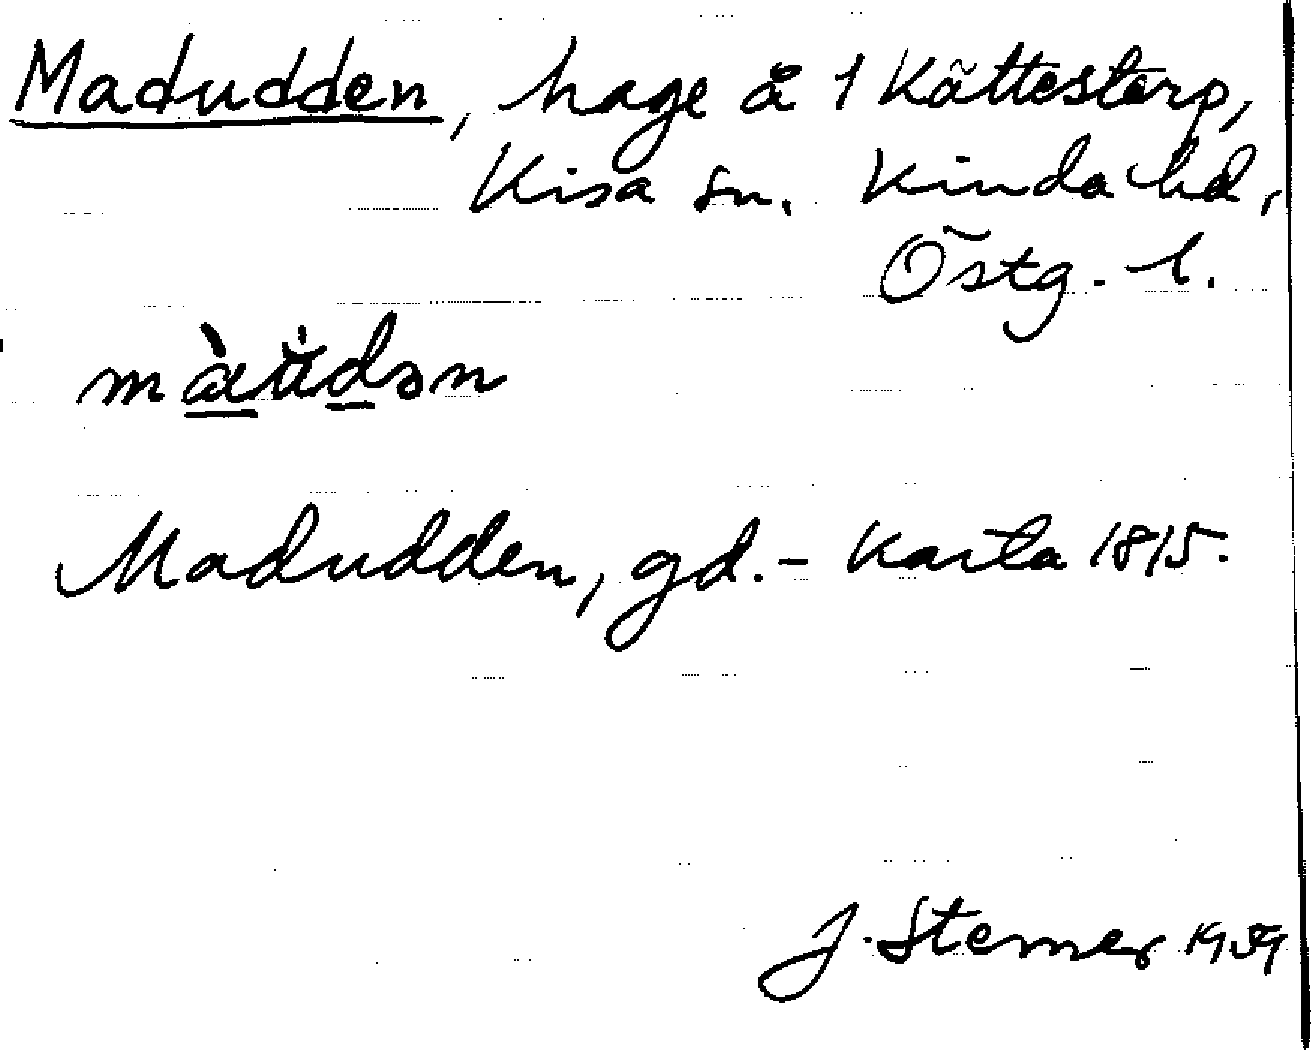 Madudden, hage å 1 Kättestorp,
Kisa sn. Kinda hd,
Östg. l.
Madudden, gd. - Karta 1815.
J. Sterner 1959